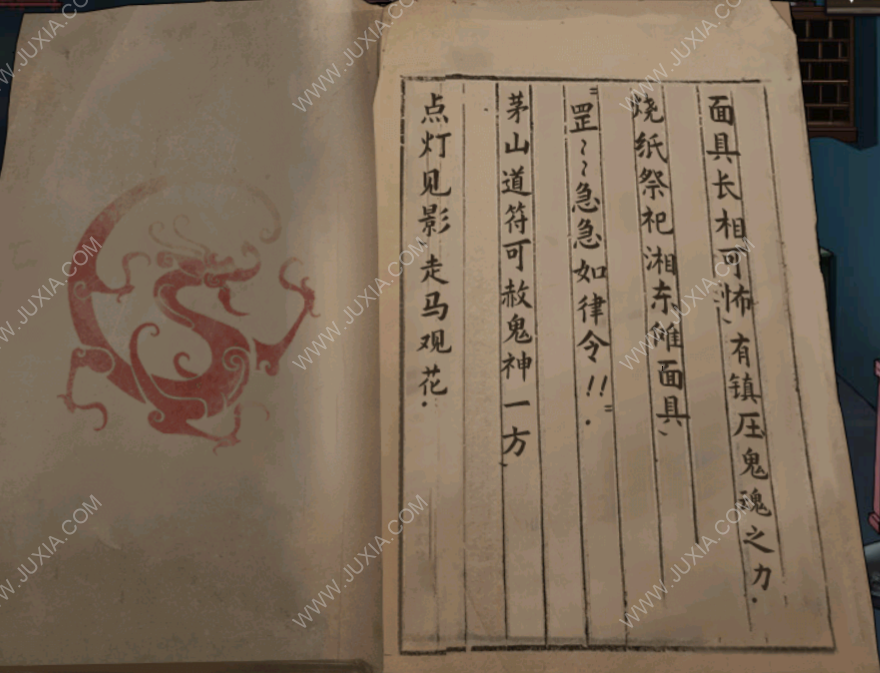 面具长相可怖、有镇压鬼魂之力.
烧纸祭祀湘东傩面具、
"罡~~急急如律令!!".
茅山道符可赦鬼神一方、
点灯见影、走马观花.
WWW.JUXIA.COM